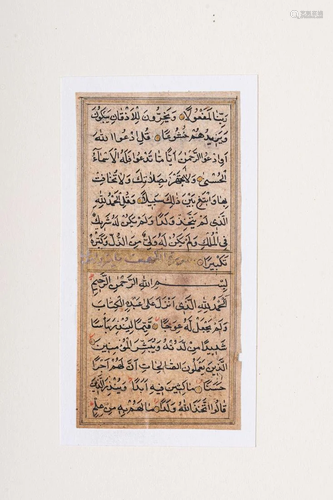 رَبِّنَا لَمَفْعُولًا وَيَخِرُّونَ لِلْأَذْقَانِ يَبْكُونَ
وَيَزِيدُهُمْ خُشُوعًا قُلِ ادْعُوا اللهَ
أَوِ ادْعُوا الرَّحْمٰنَ أَيًّا مَا تَدْعُوا فَلَهُ الْأَسْمَاءُ
الْحُسْنَى وَلَا تَجْهَرْ بِصَلَاتِكَ وَلَا تُخَافِتْ
بِهَا وَابْتَغِ بَيْنَ ذٰلِكَ سَبِيلًا وَقُلِ الْحَمْدُ لِلّٰهِ
الَّذِي لَمْ يَتَّخِذْ وَلَدًا وَلَمْ يَكُنْ لَهُ شَرِيكٌ
فِي الْمُلْكِ وَلَمْ يَكُنْ لَهُ وَلِيٌّ مِنَ الذُّلِّ وَكَبِّرْهُ
تَكْبِيرًا سورة الكهف
بِسْمِ اللهِ الرَّحْمٰنِ الرَّحِيمِ
الْحَمْدُ لِلّٰهِ الَّذِي أَنْزَلَ عَلَى عَبْدِهِ الْكِتَابَ
وَلَمْ يَجْعَلْ لَهُ عِوَجًا قَيِّمًا لِيُنْذِرَ بَأْسًا
شَدِيدًا مِنْ لَدُنْهُ وَيُبَشِّرَ الْمُؤْمِنِينَ
الَّذِينَ يَعْمَلُونَ الصَّالِحَاتِ أَنَّ لَهُمْ أَجْرًا
حَسَنًا مَاكِثِينَ فِيهِ أَبَدًا وَيُنْذِرَ الَّذِينَ
قَالُوا اتَّخَذَ اللهُ وَلَدًا مَا لَهُمْ بِهِ مِنْ عِلْمٍ